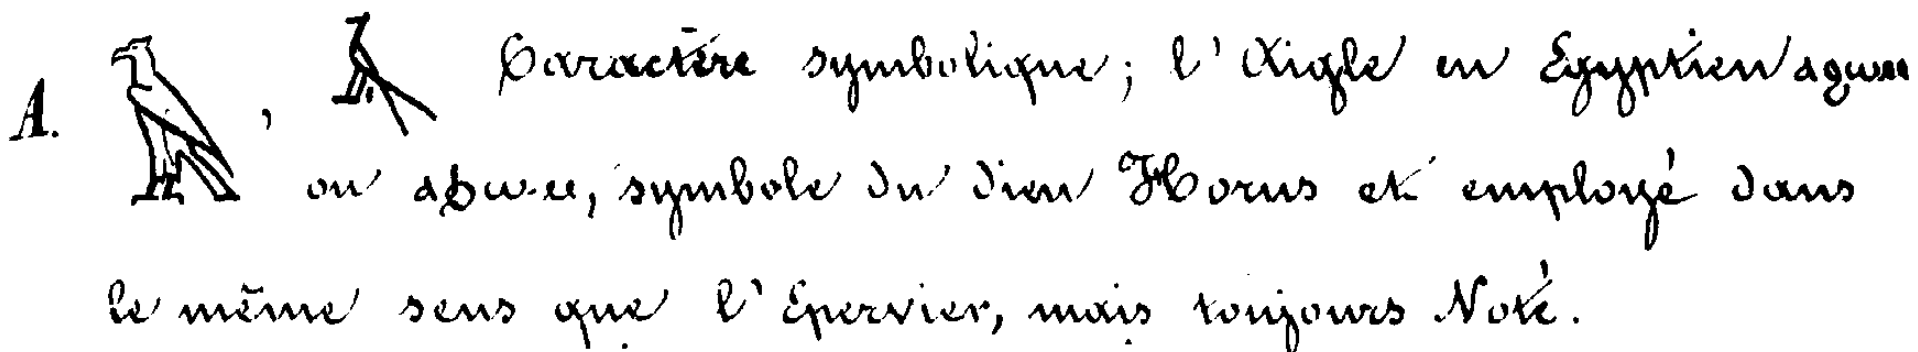 A. 𓄿, Caractère symbolique; l'Aigle en Egyptien ⲁϩⲱⲙ
ou ⲁϧⲱⲙ, symbole du dieu Horus et employé dans
le même sens que l'Epervier, mais toujours Noté.